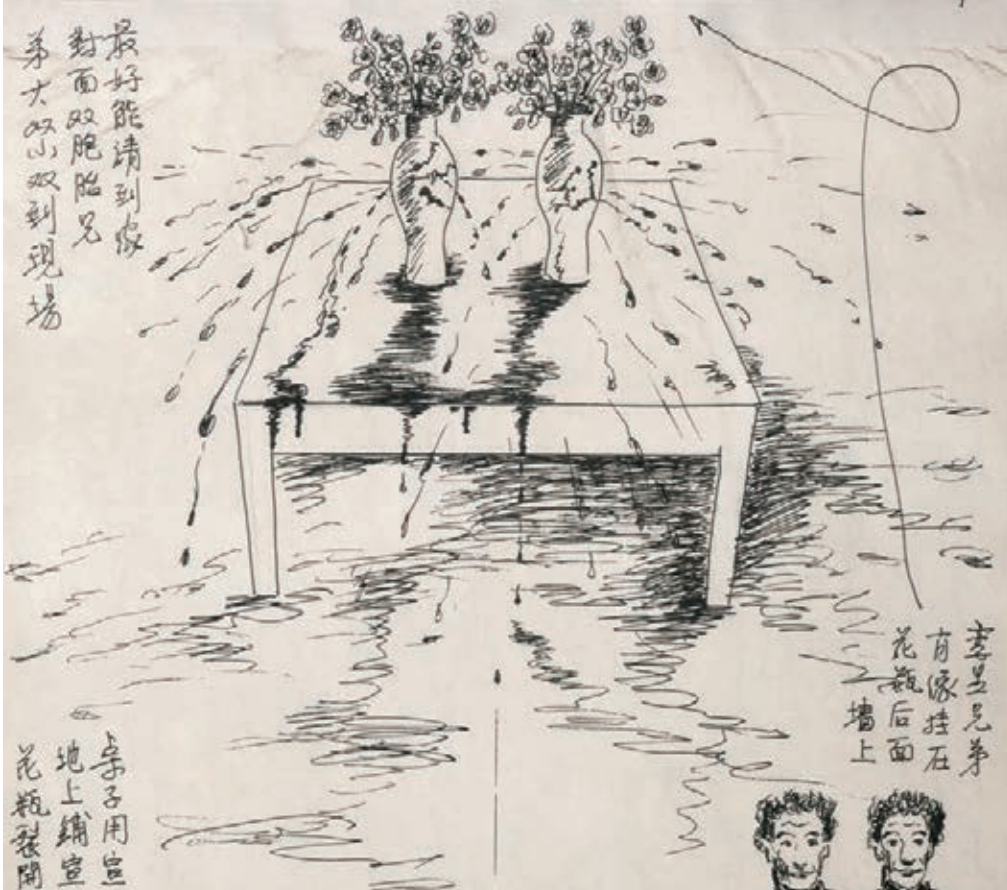 最好能請到
對面双胞胎兄
弟大双小双到現場
孪生兄弟
肖像挂在
花瓶后面
墙上
桌子用宣
地上鋪宣
花瓶裂開